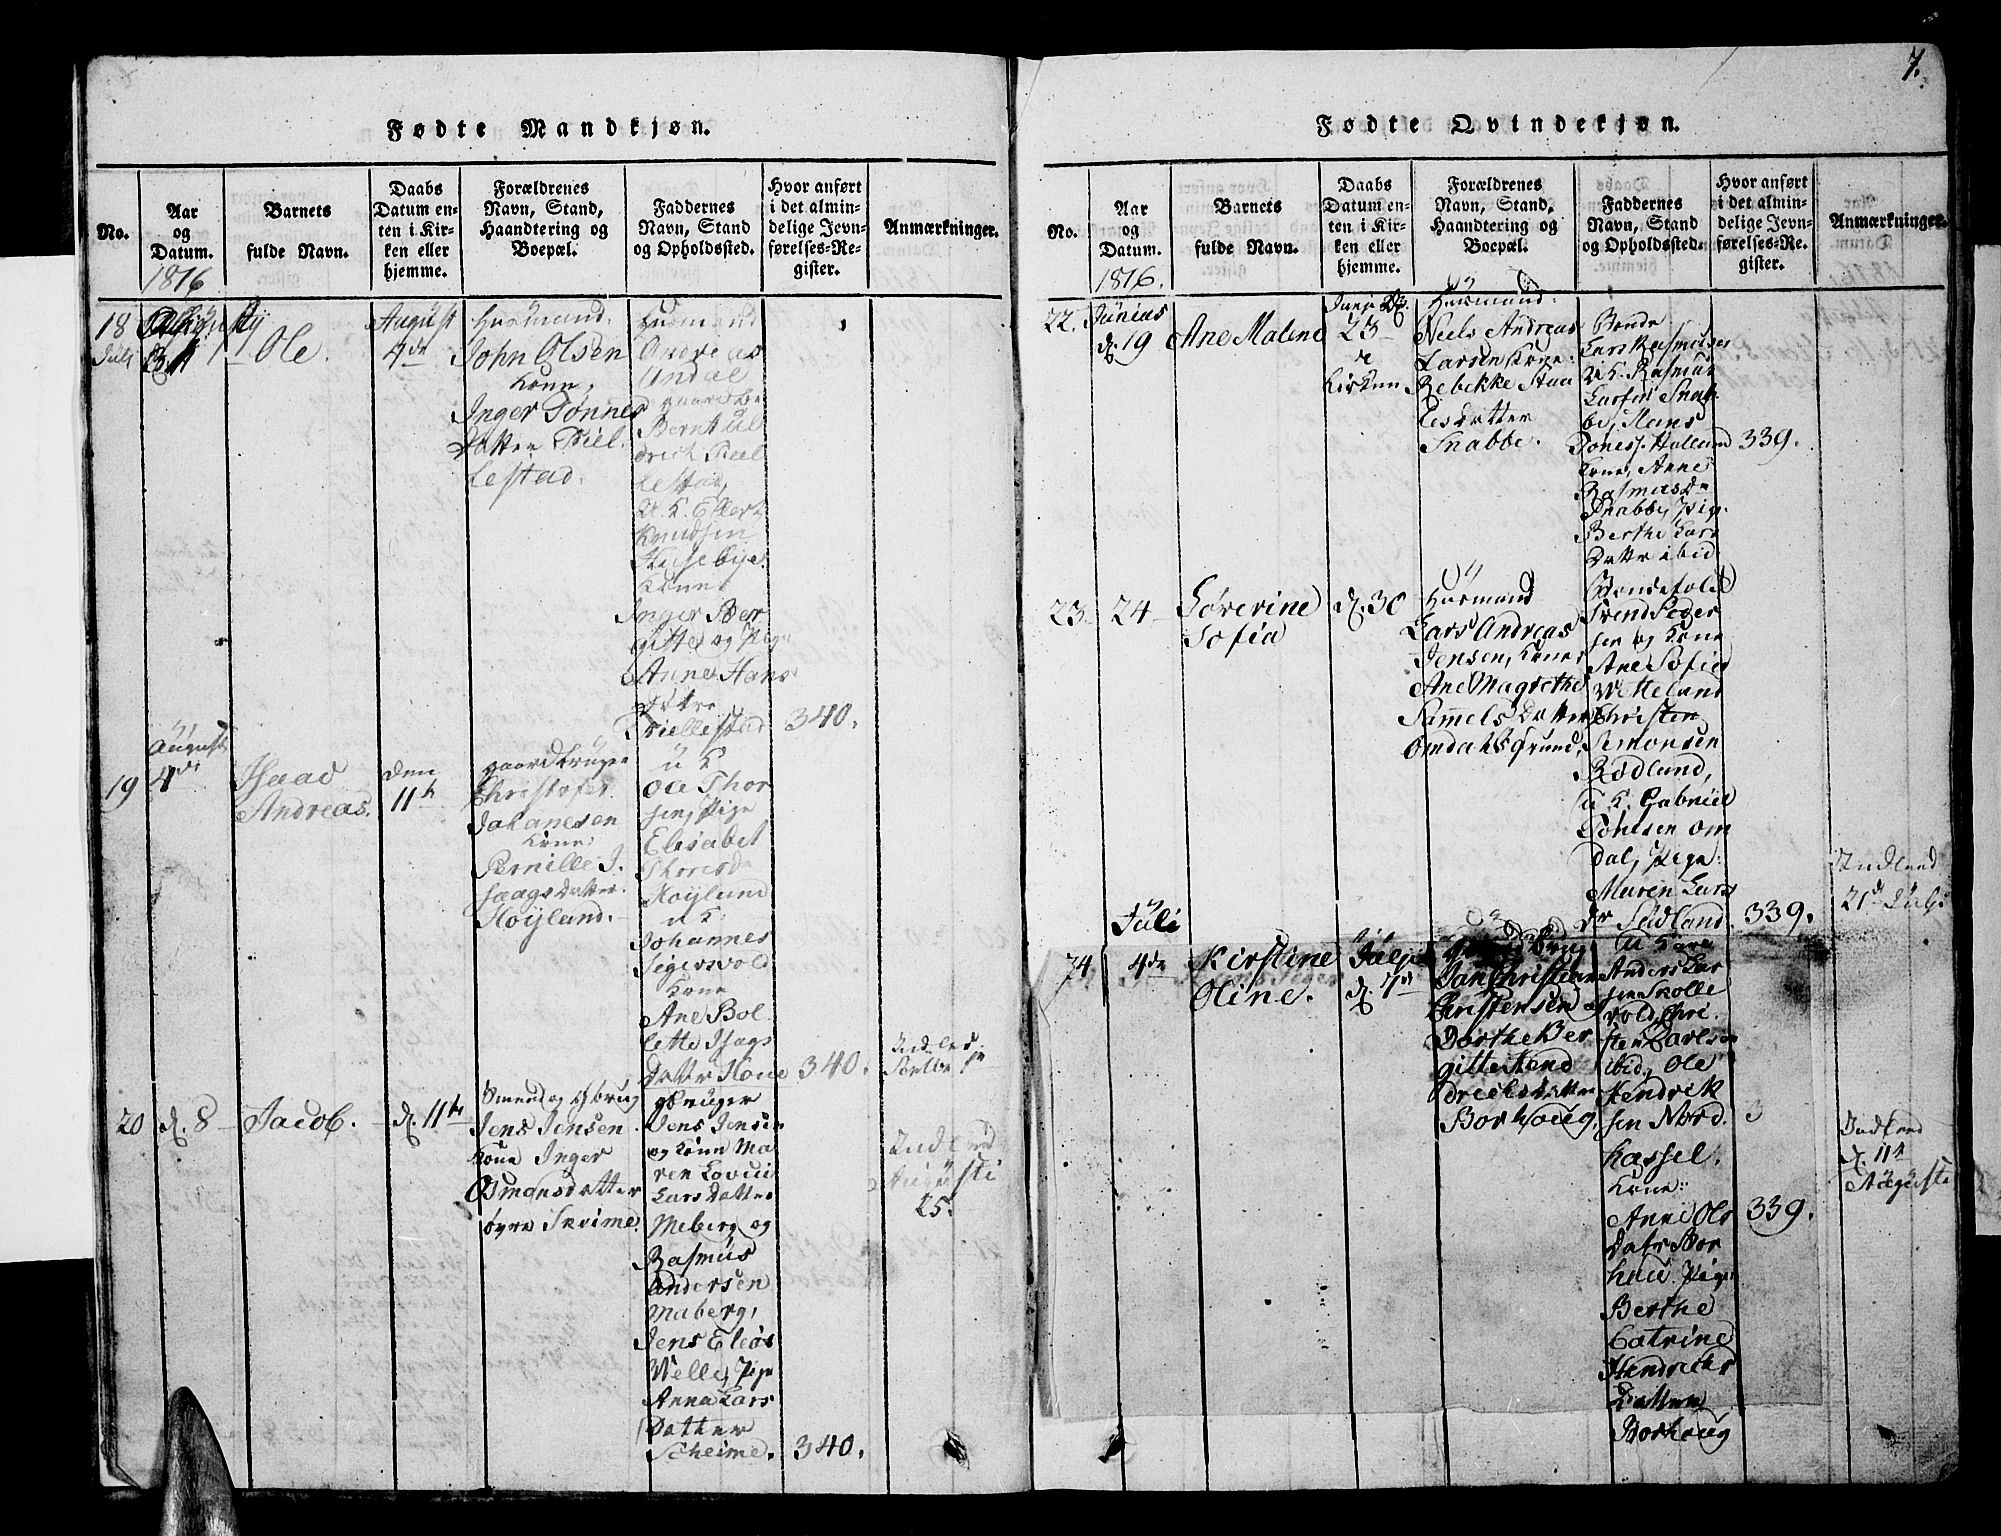 7.
Fødte Mandkjøn.
No.
Aar
og
Datum.
1816
Barnets
fulde Navn.
Daabs
Datum en-
ten i Kir-
ken eller
hjemme.
Forældrenes
Navn, Stand,
Haandtering og
Boepæl.
Faddernes
Navn, Stand
og Opholdssted.
Hvor anført
i det almin-
delige Jevn-
førelses-Re-
gister.
Anmærkninger.
18
Juli
Ole.
August
4de
Husmand.
John Olsen
Kone,
Inger Tønnes
Datter
lestad.
Husmand
Andreas
Berntül
drich
lestad,
U. K.
Knudsen
Huseby
Kone
Inger Ber
gitte og Pige
Anne Hans
Dattre
340.
19
August
4de
Isaac
Andreas.
den
11te
gaardbruger
Christofer
Johanesen
Kone:
Pernille I.
saagsdatter.
Høyland.
u K
Ole Thor
sen, Pige
Elisabet
Thorsd
Høylund
u K:
Johannes
Segersvold
Kone
Ane Bol
lette Isags
Datter Hone
340.
20
d. 8
Jacob.
d. 11te
Jens Jensen
Kone Inger
Osmonsdatter
øyre Skeime.
gbruger
Jens Jensen
og Kone Ma
ren Lovise
Lars Datter
Meberg og
Rasmus
Andersen
Maberg,
Jens Eleas
Velle, Pige
Anna Lars
Datter
Scheime.
340.
Indled
Augusti
25.
Fødte Qvindekjøn.
No.
Aar
og
Datum.
1816.
Barnets
fulde Navn.
Daabs
Datum en-
ten i Kir-
ken eller
hjemme.
Forældrenes
Navn, Stand,
Haandtering og
Boepæl.
Faddernes
Navn, Stand
og Opholdssted.
Hvor anført
i det almin-
delige Jevn-
førelses-Re-
gister.
Anmærkninger.
22.
Junius
d. 19
Ane Malene
23
i
Kirken
Husmand:
Neels Andreas
Larsen Kone:
Rebekke Staa
lesdatter
Snabbe.
Bonde
Lars Rasmusen
U K. Rasmus
Larsen Snab
be, Hans
Tones. Hallund
Kone, Anne
Rasmusdr
Snabbe, Pige
Berthe Lars
Dattr ibid
339.
23
24
Søverine
Sofia
d. 30
Husmand
Lars Andreas
Jensen, Kone
Ane Magrethe
Samuels Datter
Omdals Grund,
Bondefolk
Svend Peder
sen og Kone
Ane Sofie
Vettelund
Christen
Semonsen
Rødlund,
U K. Gabriel
Tohlsen Om
dal, Pige:
Maren Lars
dr Sædland.
339.
Indled
21de Julii
24
Juli
4de
Kirstine
Oline.
Julij
d. 7de
Jan Christian
Christensen
Dorthe Ber
gitte Hend
drichsdatter
Borhoug,
U Kare
Anders Lar
sen Skolle
vold, Chri
sten Carlsen
ibid., Ole
Hendrik
sen Nord
hassel.
Kone:
Anne Ols
Datr Bor
hou Pige
Berthe
Catrine
Hendrichs
Datter
Borhoug
339.
Indled
d. 11te
Auguste